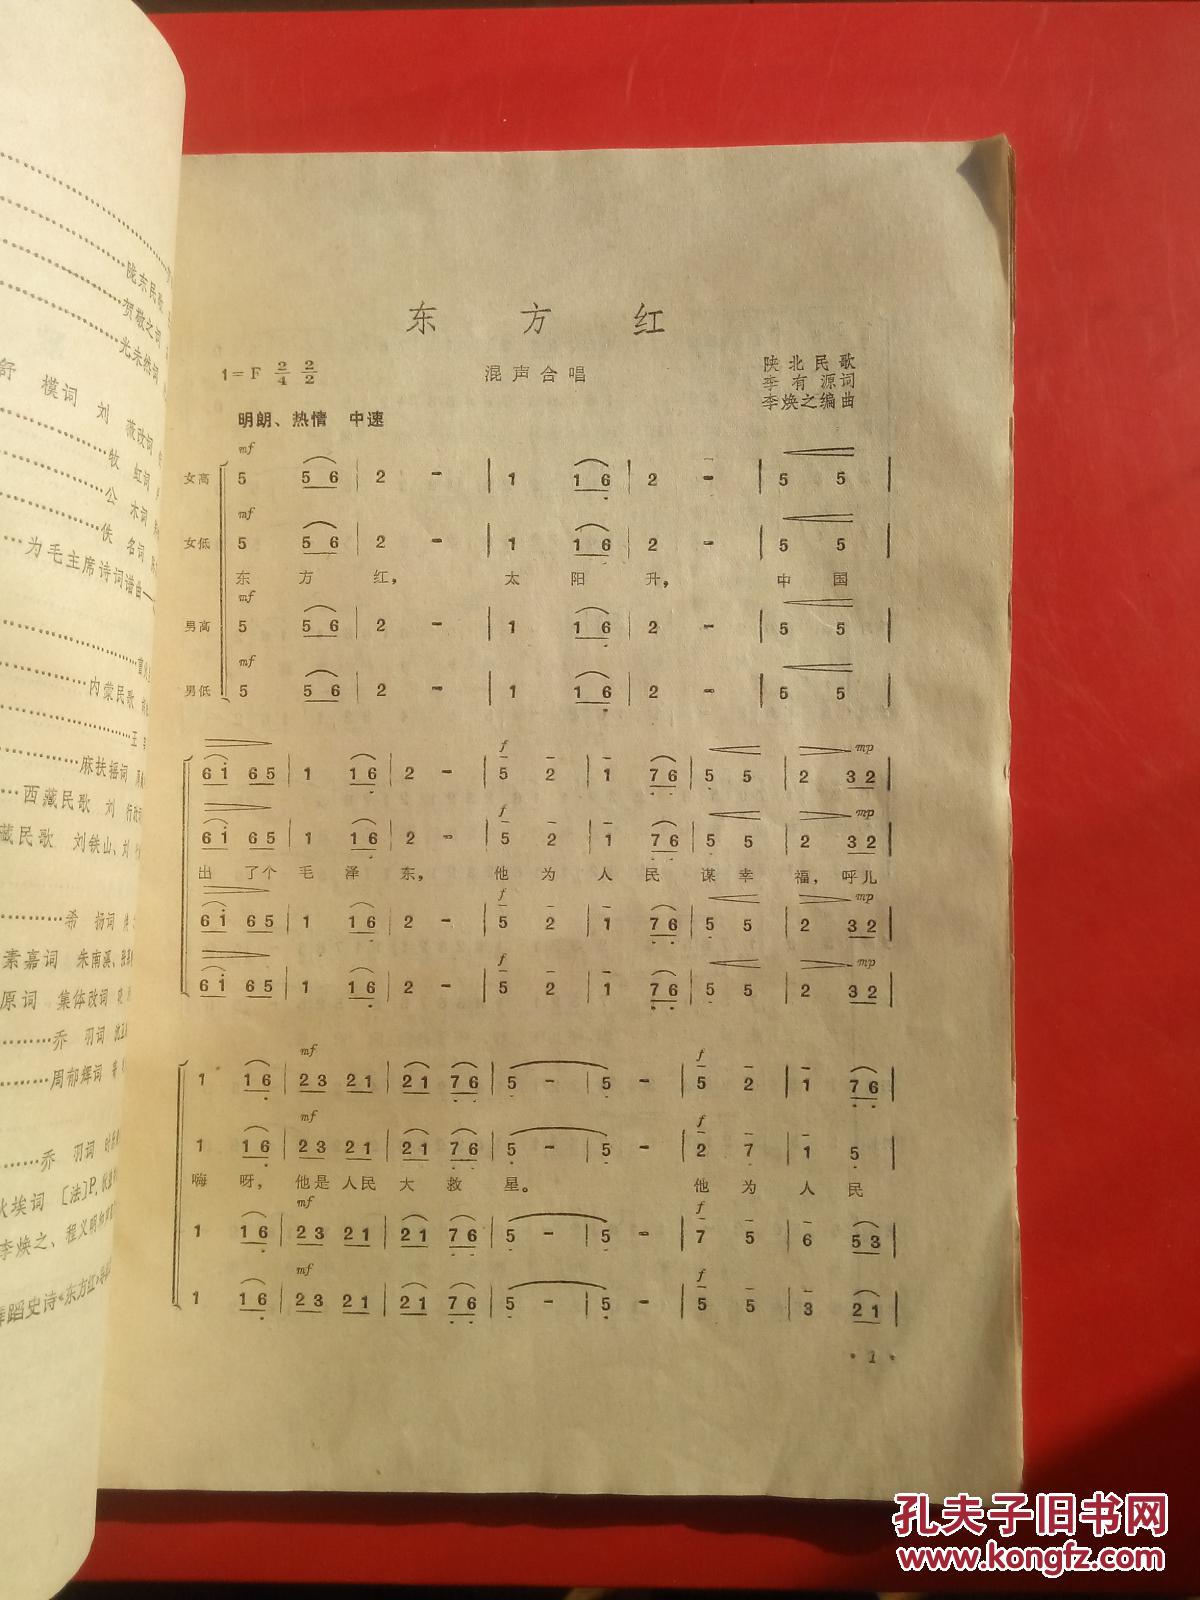 陇东民歌
贺敬之词
光未然词
舒 模词 刘 薇改词
牧 虹词
公 木词
佚 名词
为毛主席诗词谱曲
内蒙民歌
麻扶摇词
西藏民歌 刘 行改词
藏民歌 刘铁山、刘
希 扬词
素嘉词 朱南溪、
原词 集体改词
乔 羽词
周郁辉词
乔 羽词
埃词 〔法〕P.
李焕之、程义明
蹈史诗《东方红》
东 方 红
1=F 2/4 2/2
混声合唱
陕北民歌
李有源词
李焕之编曲
明朗、热情 中速
mf
女高 5 56 | 2 - | 1 16 | 2 - | 5 5 |
mf
女低 5 56 | 2 - | 1 16 | 2 - | 5 5 |
东 方 红， 太 阳 升， 中 国
mf
男高 5 56 | 2 - | 1 16 | 2 - | 5 5 |
mf
男低 5 56 | 2 - | 1 16 | 2 - | 5 5 |
f mp
61 65 | 1 16 | 2 - | 5 2 | 1 76 | 5 5 | 2 32 |
f mp
61 65 | 1 16 | 2 - | 5 2 | 1 76 | 5 5 | 2 32 |
出 了个 毛 泽 东， 他 为 人 民 谋 幸 福， 呼儿
f mp
61 65 | 1 16 | 2 - | 5 2 | 1 76 | 5 5 | 2 32 |
f mp
61 65 | 1 16 | 2 - | 5 2 | 1 76 | 5 5 | 2 32 |
mf f
1 16 | 23 21 | 21 76 | 5 - | 5 - | 5 2 | 1 76 |
mf f
1 16 | 23 21 | 21 76 | 5 - | 5 - | 2 7 | 1 5 |
嗨 呀， 他是 人民 大 救 星。 他 为 人 民
mf f
1 16 | 23 21 | 21 76 | 5 - | 5 - | 7 5 | 6 53 |
mf f
1 16 | 23 21 | 21 76 | 5 - | 5 - | 5 5 | 3 21 |
· 1 ·
孔夫子旧书网
www.kongfz.com